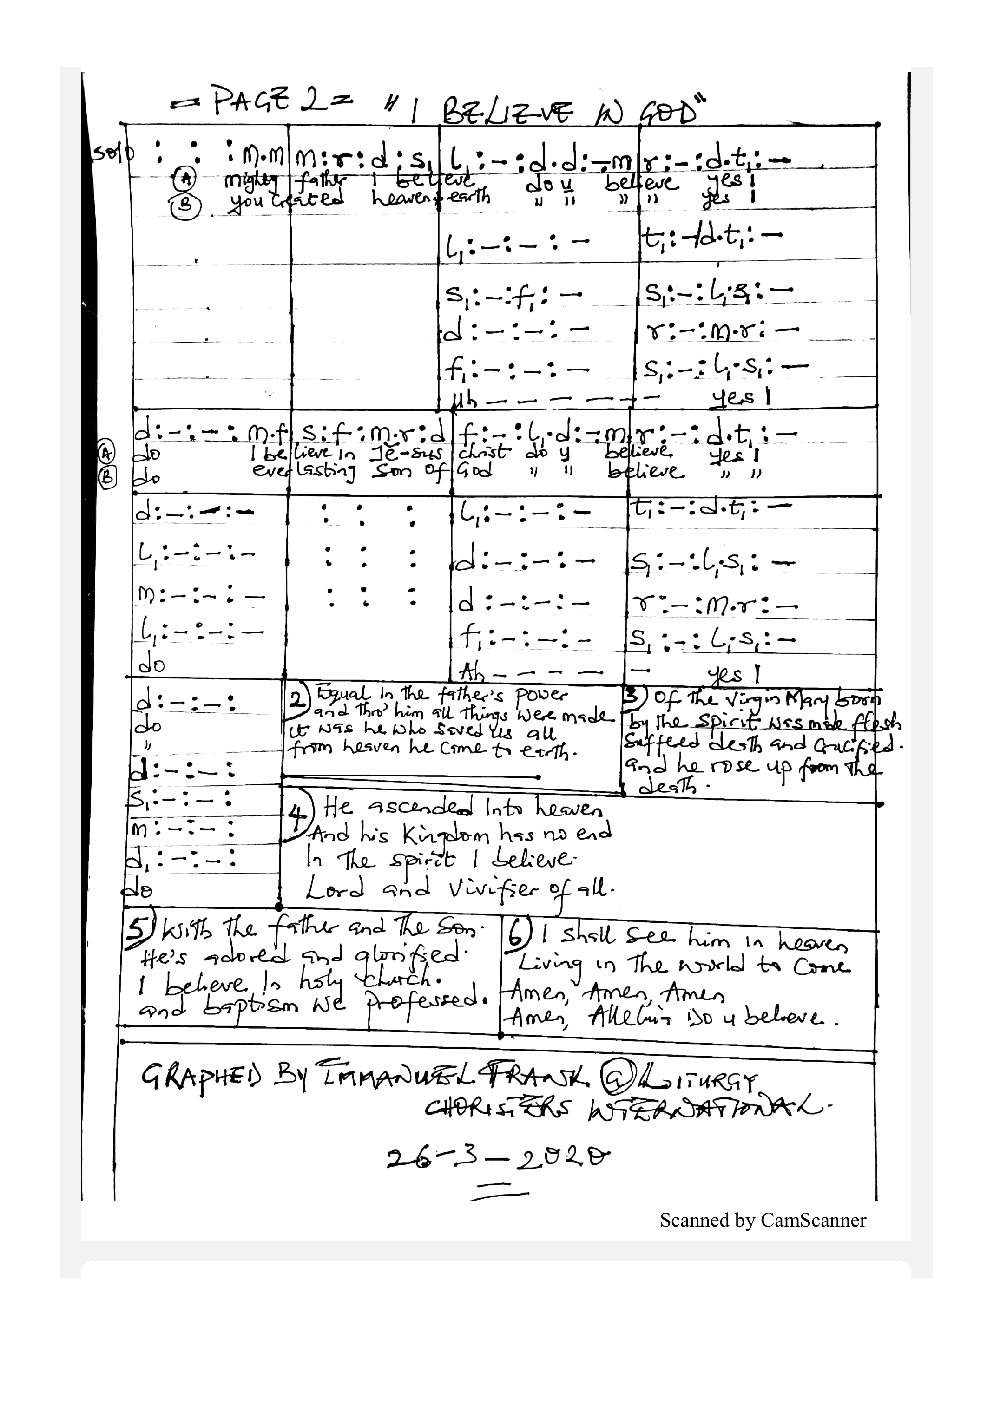 = PAGE 2 = "I BELIEVE IN GOD"
Solo : : : m.m m : r : d : s₁ l₁ : - : d.d : - m r : - : d.t₁ : -
(A) mighty father I believe do u believe yes!
(B) you created heaven & earth " " " " yes!
l₁ : - : - : - t₁ : -/d.t₁ : -
s₁ : - : f₁ : - s₁ : - : l₁.s₁ : -
d : - : - : - r : - : m.r : -
f₁ : - : - : - s₁ : - : l₁.s₁ : -
- - - - - - yes!
d : - : - : m.f s : f : m.r : d f : - : l₁.d : - m r : - : d.t₁ : -
(A) do I believe in Je-sus christ do u believe yes!
(B) do everlasting Son of God " " believe " "
d : - : - : - : : : l₁ : - : - : - t₁ : - : d.t₁ : -
l₁ : - : - : - : : : d : - : - : - s₁ : - : l₁.s₁ : -
m : - : - : - : : : d : - : - : - r : - : m.r : -
l₁ : - : - : - f₁ : - : - : - s₁ : - : l₁.s₁ : -
do Ah - - - - - yes!
d : - : - :
do
"
d : - : - :
s₁ : - : - :
m : - : - :
d₁ : - : - :
do
2) Equal in the father's power
and thro' him all things were made
it was he who saved us all
from heaven he come to earth.
3) Of the Virgin Mary born
by the spirit was made flesh
Suffered death and Crucified.
and he rose up from the
death.
4) He ascended into heaven
And his Kingdom has no end
In the spirit I believe.
Lord and Vivifier of all.
5) With the father and the Son.
He's adored and glorified.
I believe in holy church.
and baptism we professed.
6) I shall see him in heaven
Living in the world to Come
Amen, Amen, Amen
Amen, Do u believe.
GRAPHED BY IMMANUEL FRANK @ LITURGY
CHORISTERS INTERNATIONAL.
26-3-2020
Scanned by CamScanner